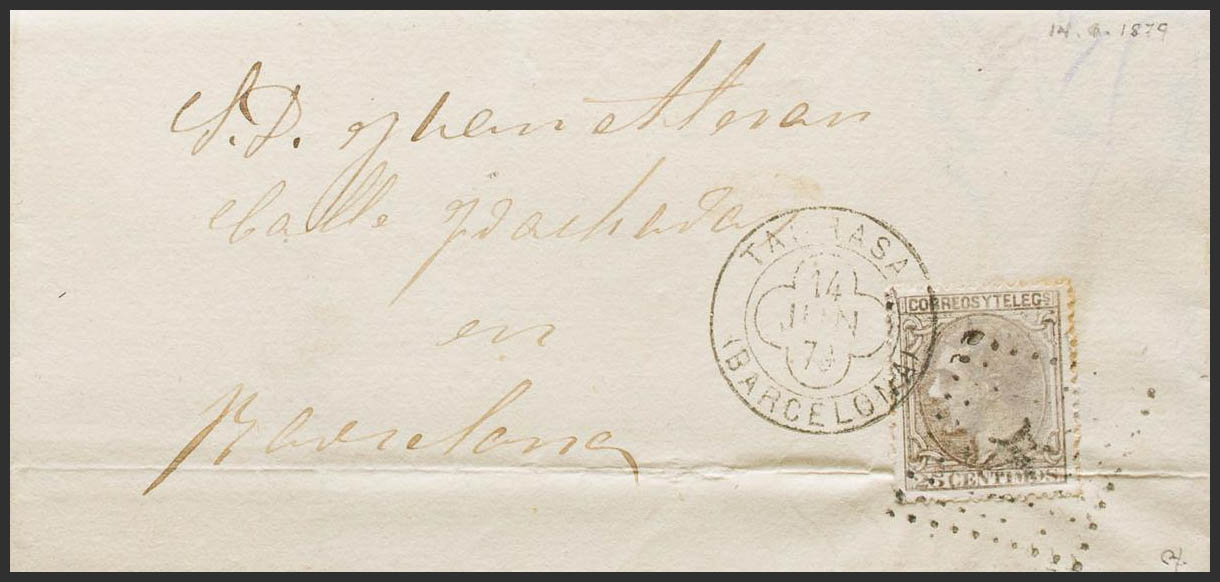 14. 6. 1879
S. D. Juan Alteran
Calle
en
Barcelona
TARRASA
14
JUN
79
(BARCELONA)
CORREOS Y TELEGS
25 CENTIMOS